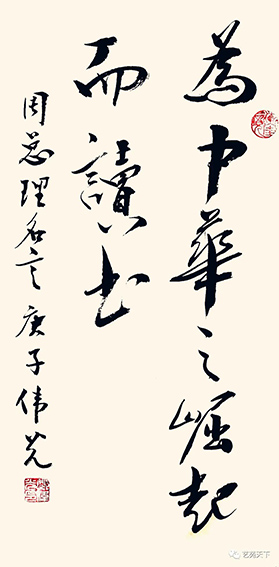 為中華之崛起
而讀书
周总理名言 庚子伟光
艺苑天下